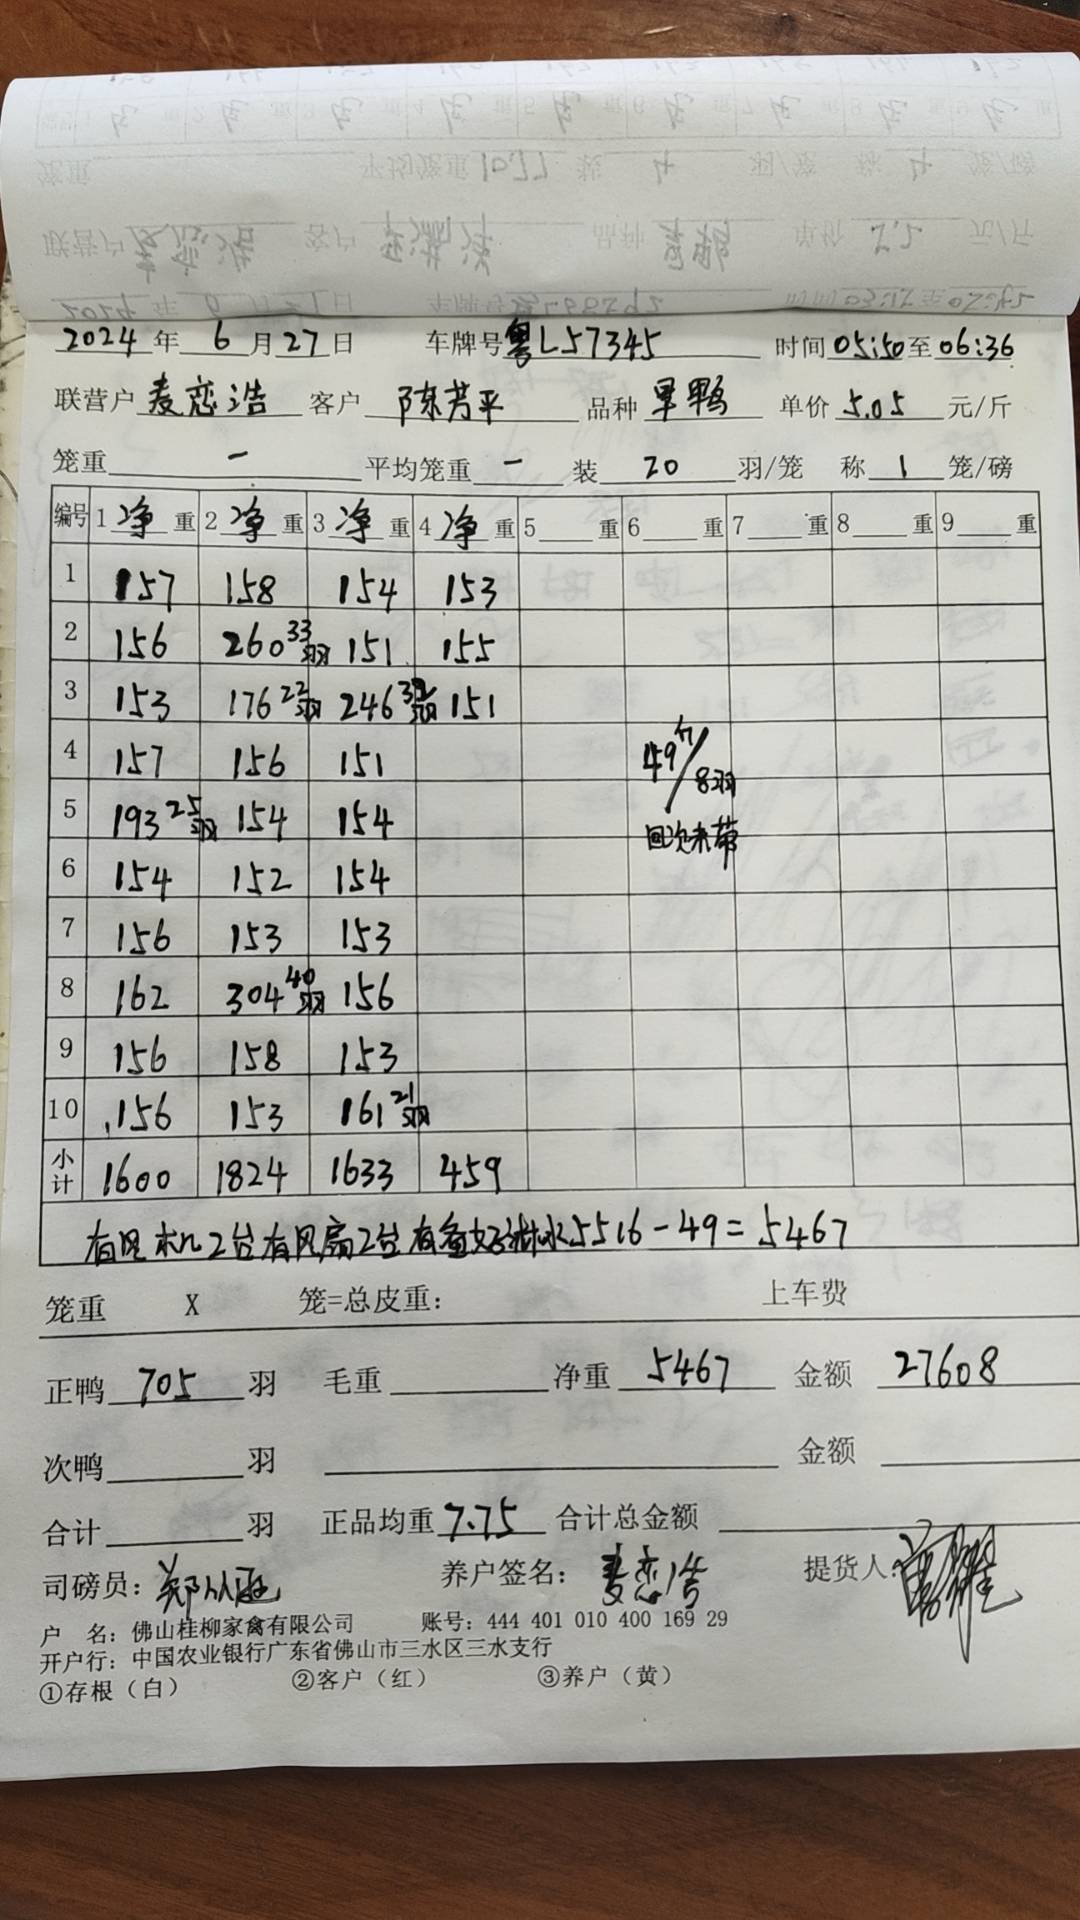 2024年 6月27日 车牌号粤L57345 时间05:50至06:36
联营户麦恋浩 客户 陈芳平 品种 旱鸭 单价 5.05 元/斤
笼重 — 平均笼重 — 装 20 羽/笼 称 1 笼/磅
编号 1净重 2净重 3净重 4净重 5重 6重 7重 8重 9重
1 157 158 154 153
2 156 260 33羽 151 155
3 153 176 22羽 246 32羽 151
4 157 156 151 49斤/8羽
5 193 25羽 154 154 回次未带
6 154 152 154
7 156 153 153
8 162 304 40羽 156
9 156 158 153
10 156 153 161 21羽
小计 1600 1824 1633 459
有风机2台有风扇2台有备好淋水5516-49=5467
笼重 X 笼=总皮重： 上车费
正鸭 705 羽 毛重 净重 5467 金额 27608
次鸭 羽 金额
合计 羽 正品均重 7.75 合计总金额
司磅员： 养户签名：麦恋浩 提货人：
户 名：佛山桂柳家禽有限公司 账号：444 401 010 400 169 29
开户行：中国农业银行广东省佛山市三水区三水支行
①存根（白） ②客户（红） ③养户（黄）